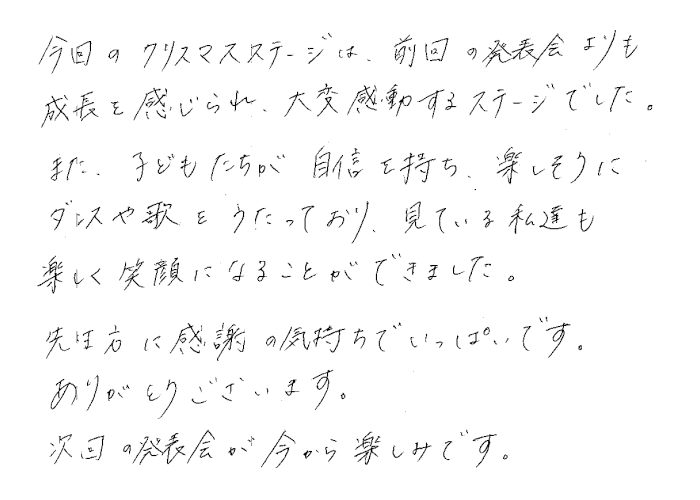 今回のクリスマスステージは、前回の発表会よりも
成長を感じられ、大変感動するステージでした。
また、子どもたちが自信を持ち、楽しそうに
ダンスや歌をうたっており、見ている私達も
楽しく笑顔になることができました。
先生方に感謝の気持ちでいっぱいです。
ありがとうございます。
次回の発表会が今から楽しみです。